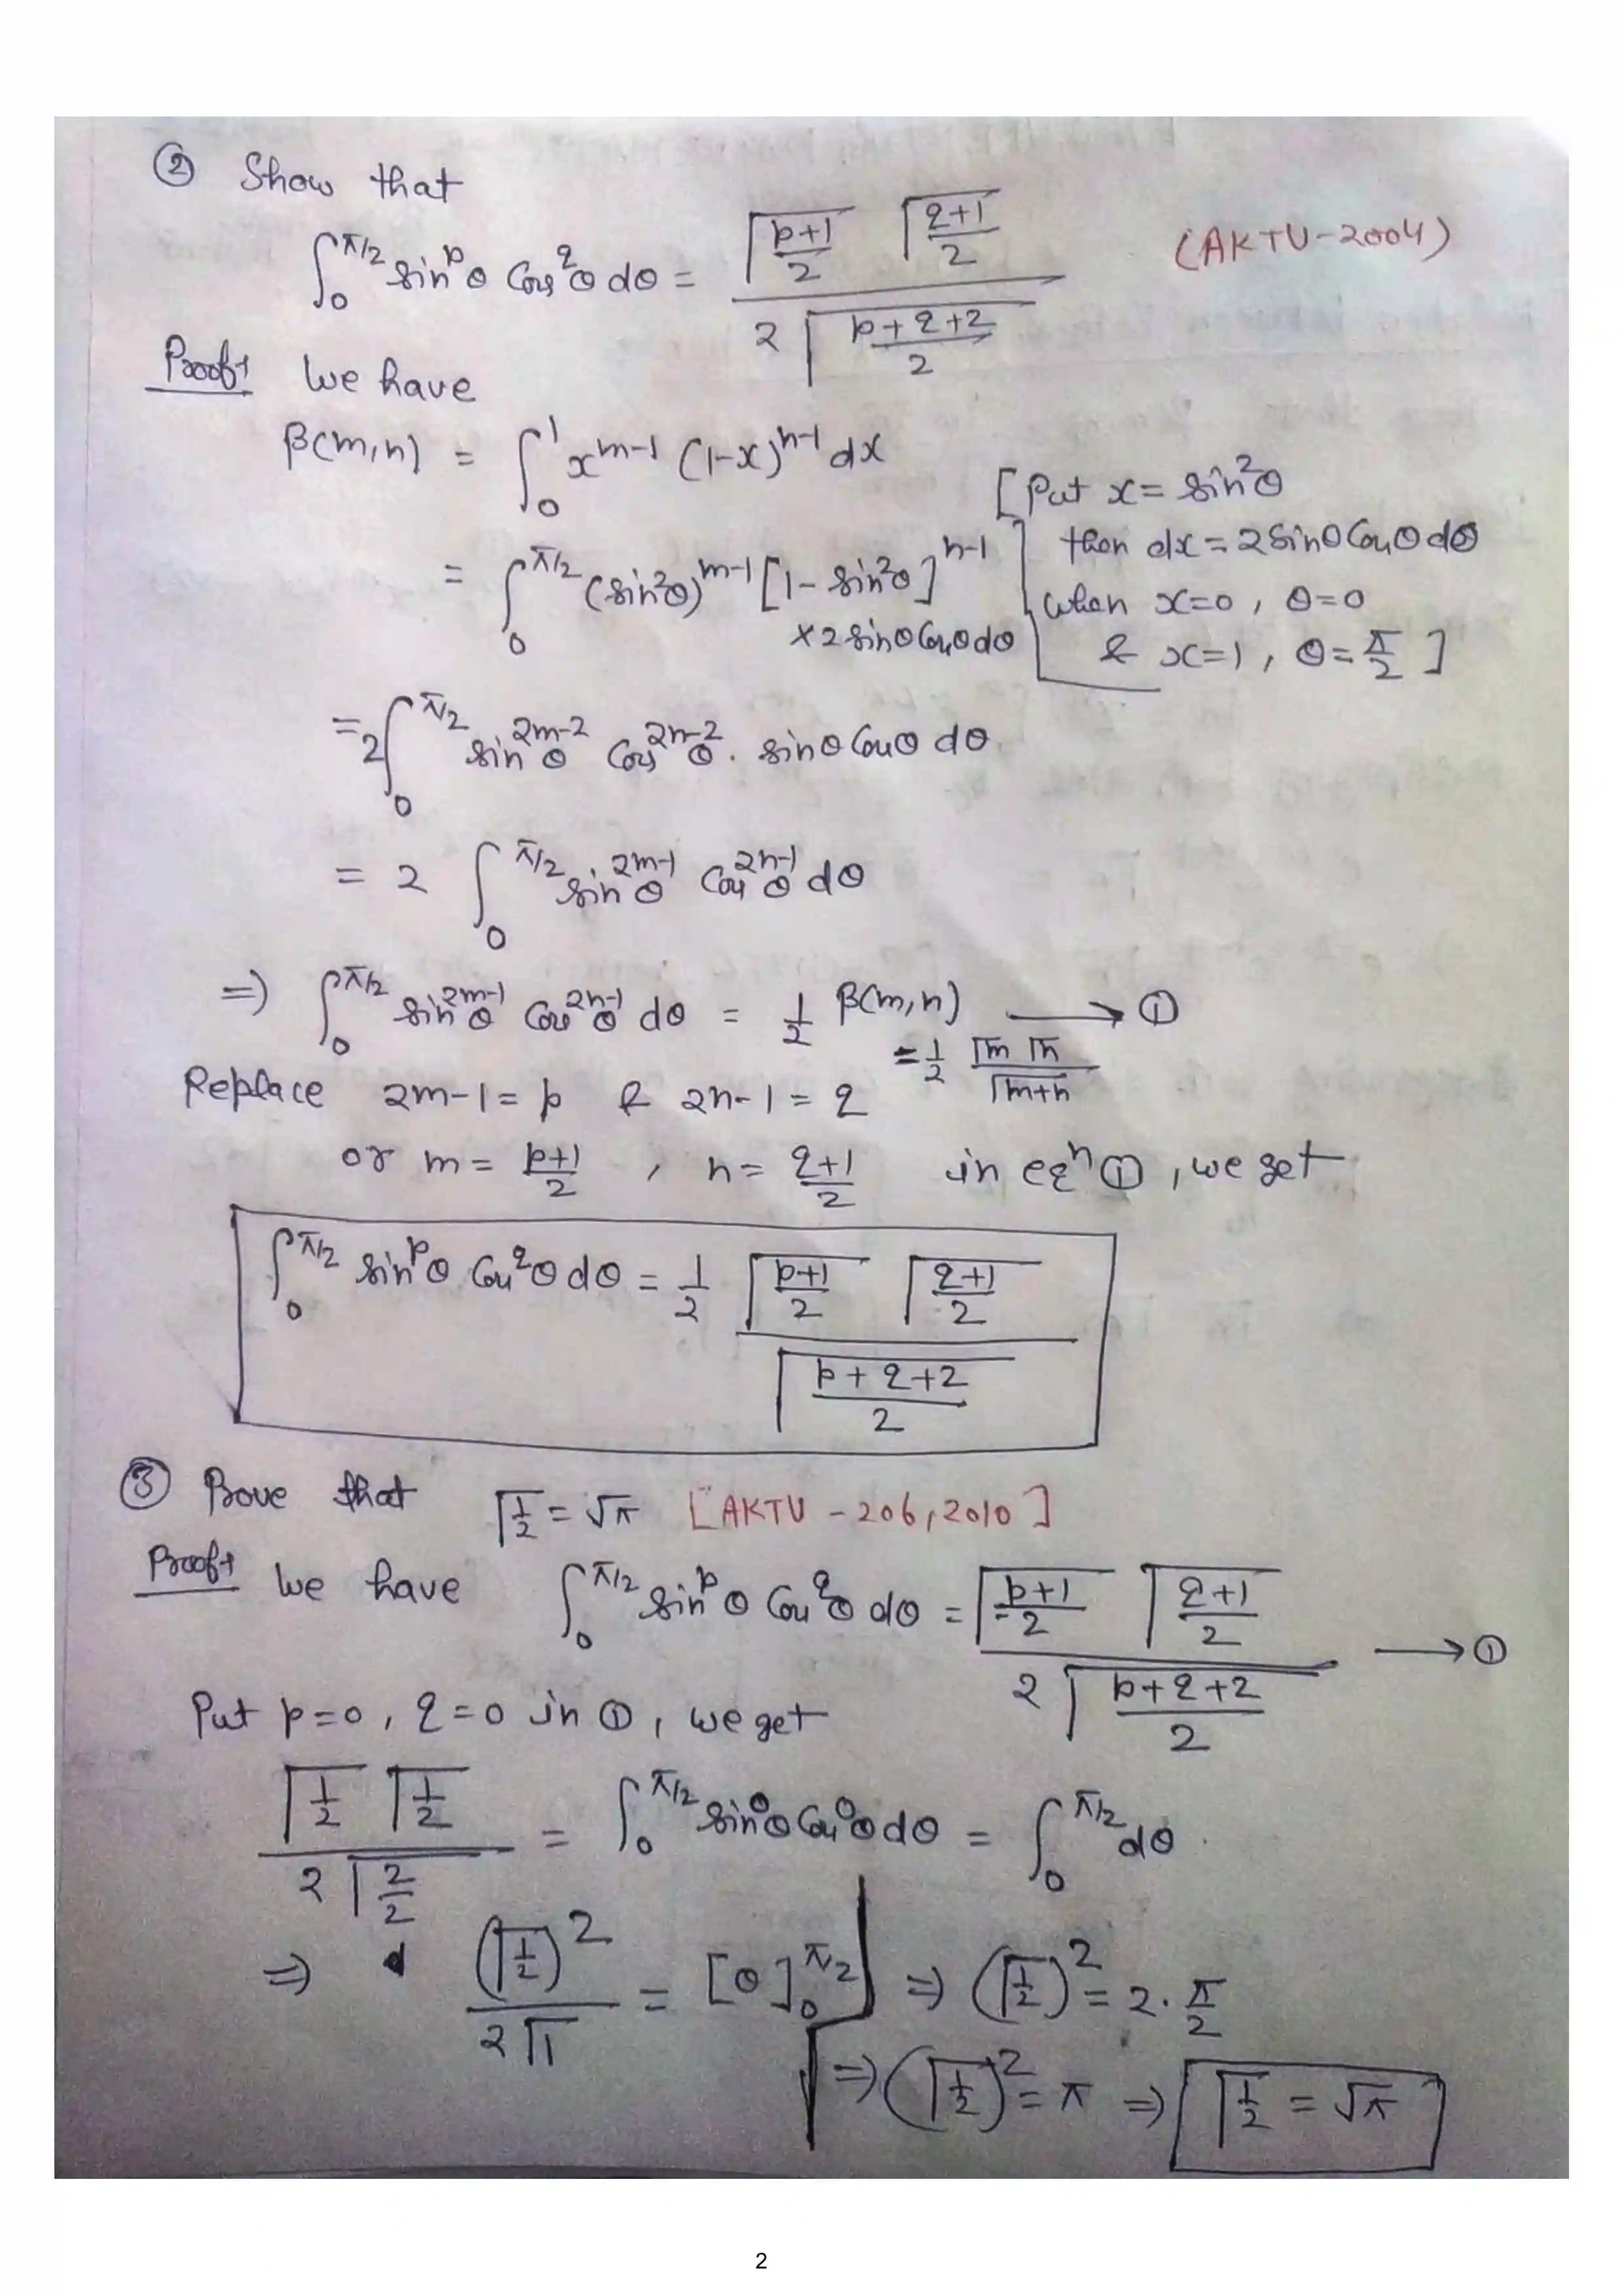 ② Show that
∫₀^{π/2} sin^p θ cos^q θ dθ = (Γ((p+1)/2) Γ((q+1)/2)) / (2 Γ((p+q+2)/2)) (AKTU-2004)
Proof:- We have
β(m,n) = ∫₀^1 x^{m-1} (1-x)^{n-1} dx
[Put x = sin²θ
= ∫₀^{π/2} (sin²θ)^{m-1} [1 - sin²θ]^{n-1}
then dx = 2 sinθ cosθ dθ
× 2 sinθ cosθ dθ
when x=0, θ=0
& x=1, θ=π/2 ]
= 2∫₀^{π/2} sin^{2m-2} θ cos^{2n-2} θ . sinθ cosθ dθ
= 2 ∫₀^{π/2} sin^{2m-1} θ cos^{2n-1} θ dθ
⇒ ∫₀^{π/2} sin^{2m-1} θ cos^{2n-1} θ dθ = 1/2 β(m,n) ⟶ ①
= 1/2 (Γm Γn) / Γ(m+n)
Replace 2m-1 = p & 2n-1 = q
or m = (p+1)/2 , n = (q+1)/2 in eqⁿ ①, we get
∫₀^{π/2} sin^p θ cos^q θ dθ = 1/2 (Γ((p+1)/2) Γ((q+1)/2)) / Γ((p+q+2)/2)
③ Prove that Γ(1/2) = √π [AKTU - 206, 2010]
Proof:- We have ∫₀^{π/2} sin^p θ cos^q θ dθ = (Γ((p+1)/2) Γ((q+1)/2)) / (2 Γ((p+q+2)/2)) ⟶ ①
Put p=0, q=0 in ①, we get
(Γ(1/2) Γ(1/2)) / (2 Γ(2/2)) = ∫₀^{π/2} sin⁰θ cos⁰θ dθ = ∫₀^{π/2} dθ
⇒ (Γ(1/2))² / (2 Γ1) = [θ]₀^{π/2}
⇒ (Γ(1/2))² = 2 . π/2
⇒ (Γ(1/2))² = π ⇒ Γ(1/2) = √π
2